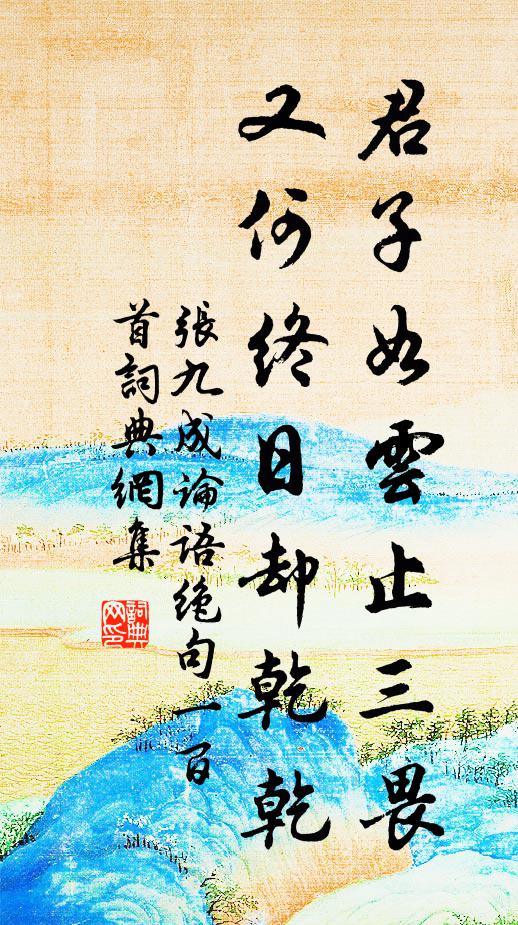 君子如雲止三畏
又何終日却乾乾
張九成論語絶句一百
首詞典網集
詞典網印